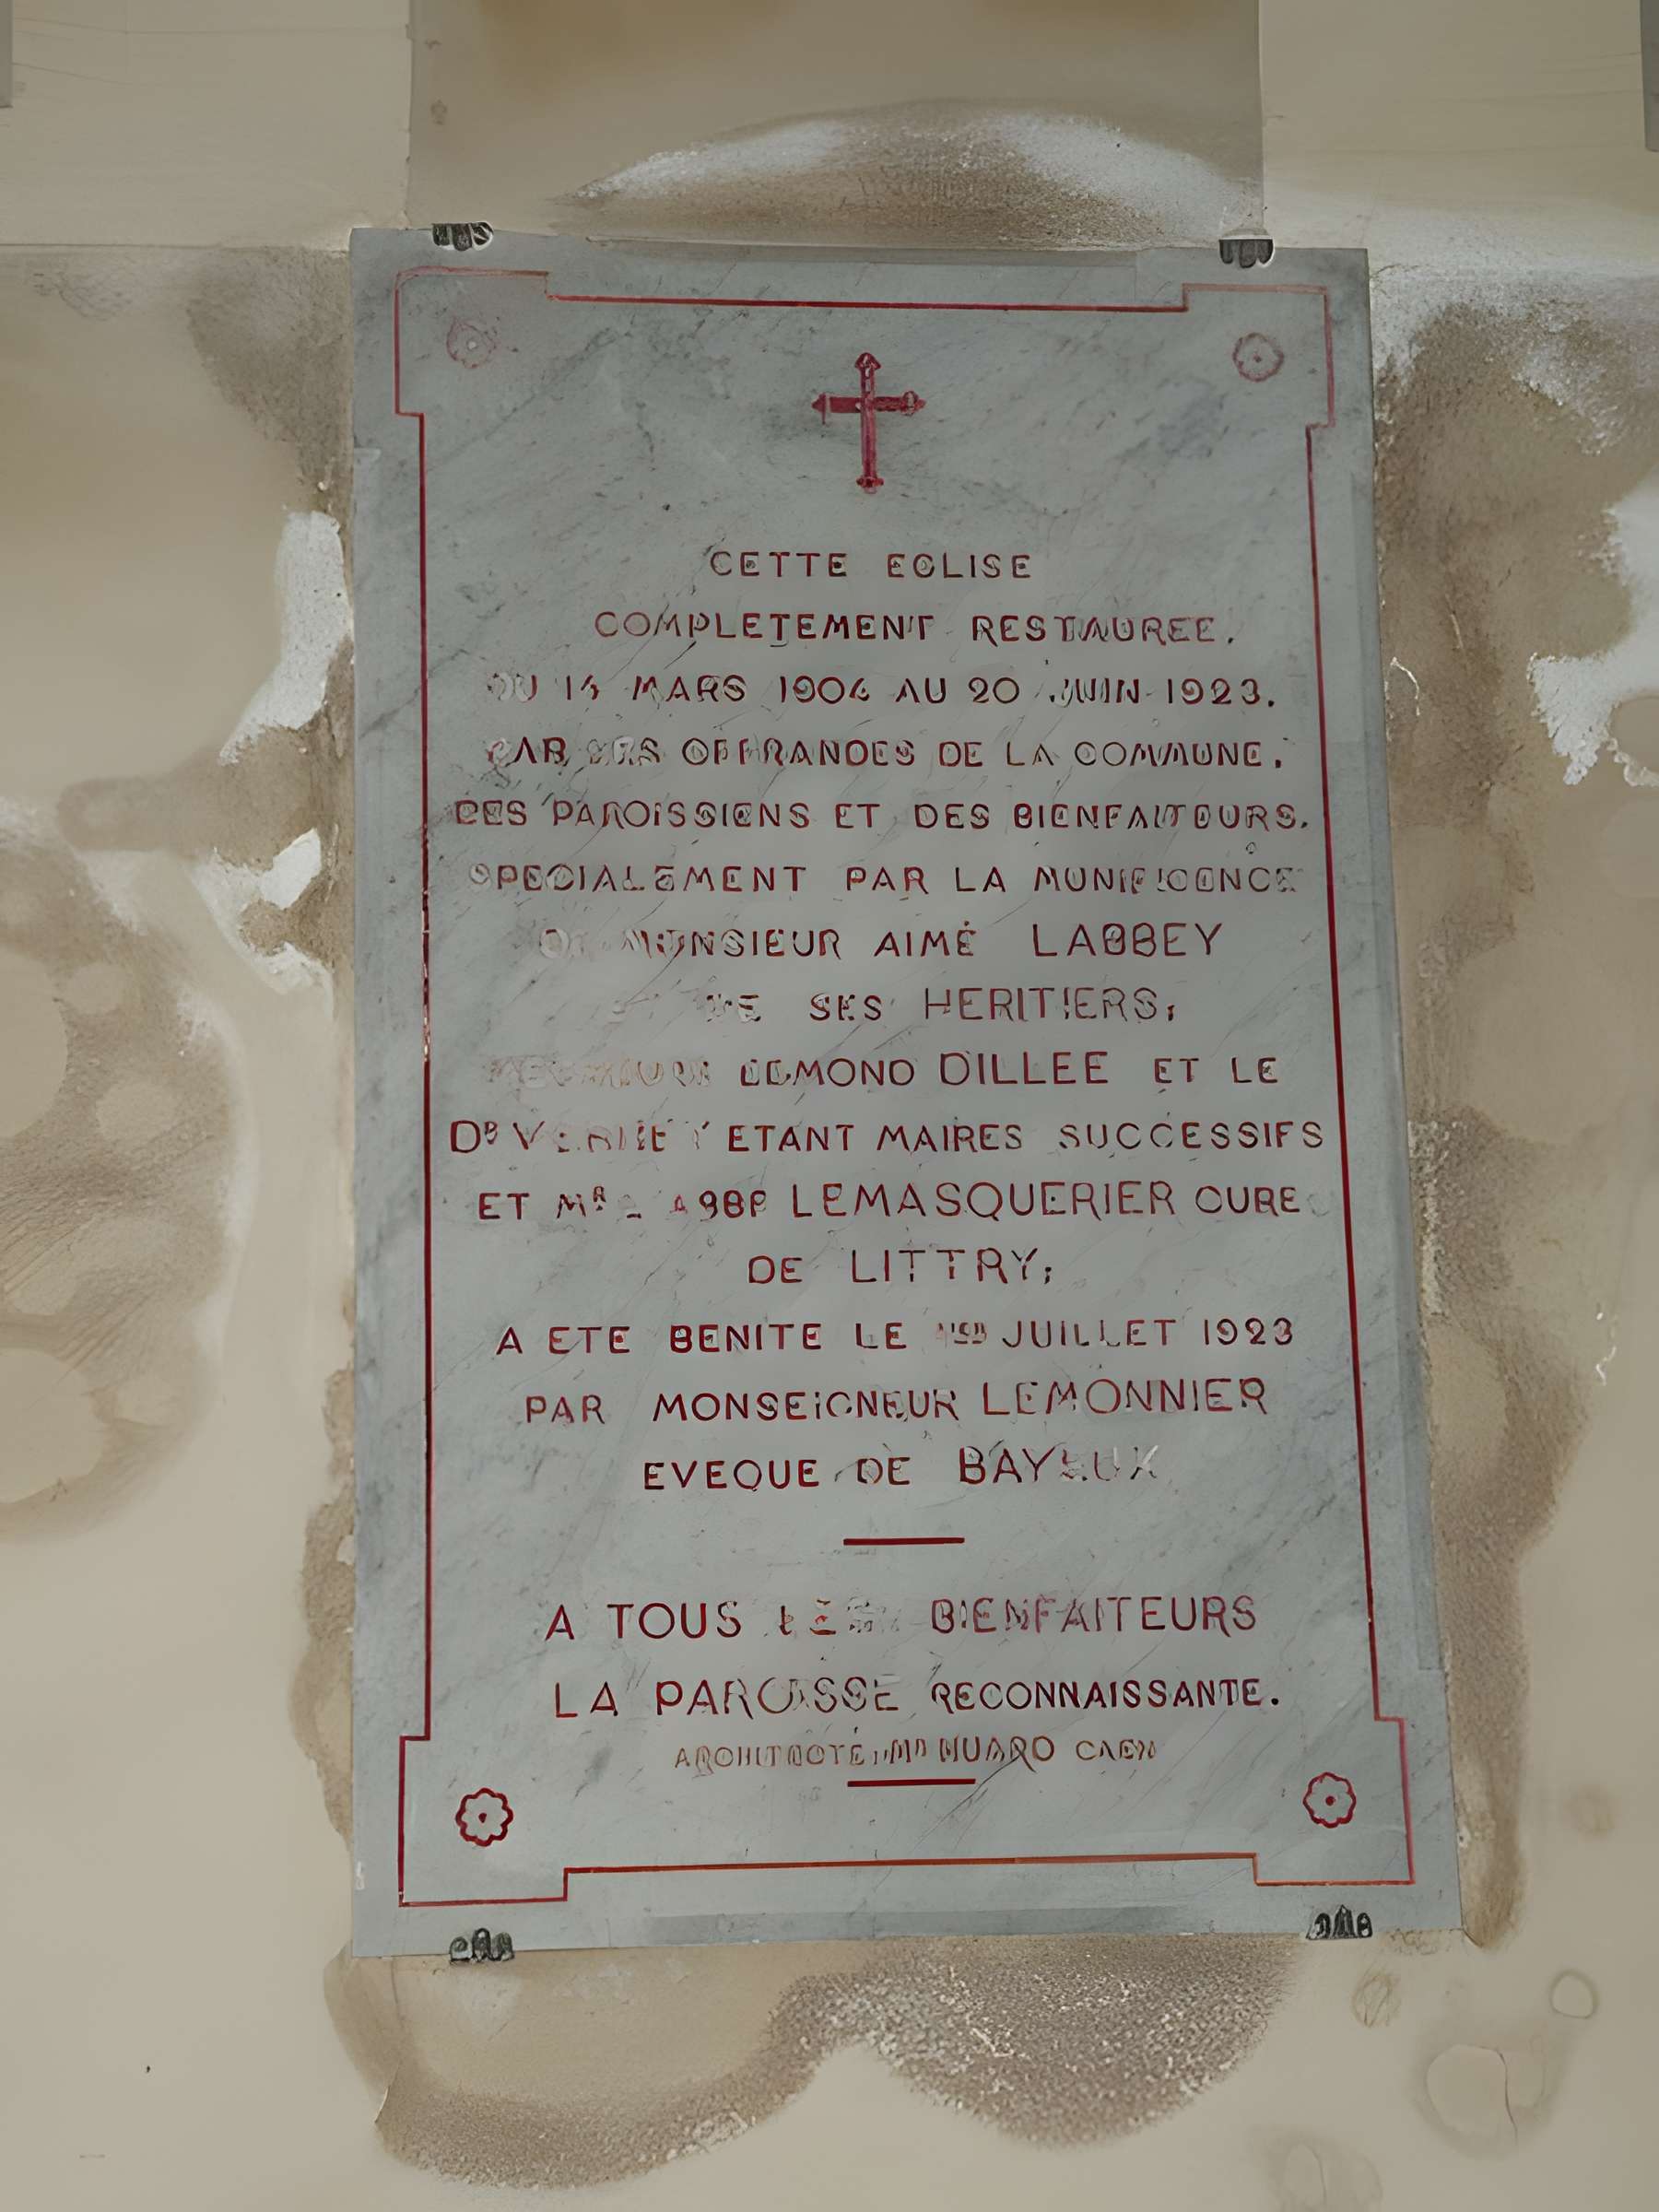 CETTE EGLISE
COMPLETEMENT RESTAUREE.
DU MARS AU 20 JUIN 1923.
PAR LES OFFRANDES DE LA COMMUNE.
DES PAROISSIENS ET DES BIENFAITEURS.
SPECIALEMENT PAR LA MUNIFICENCE
DE MONSIEUR AIMÉ LABBEY
ET DE SES HERITIERS,
EDMOND DILLEE ET LE
DR ETANT MAIRES SUCCESSIFS
ET MR LEMASQUERIER CURE
DE LITTRY;
A ETE BENITE LE JUILLET 1923
PAR MONSEIGNEUR LEMONNIER
EVEQUE DE BAYEUX
A TOUS BIENFAITEURS
LA PAROISSE RECONNAISSANTE.
ARCHITECTE CAEN